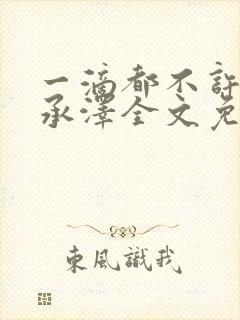 一滴都不許
承澤全文免
東風識我